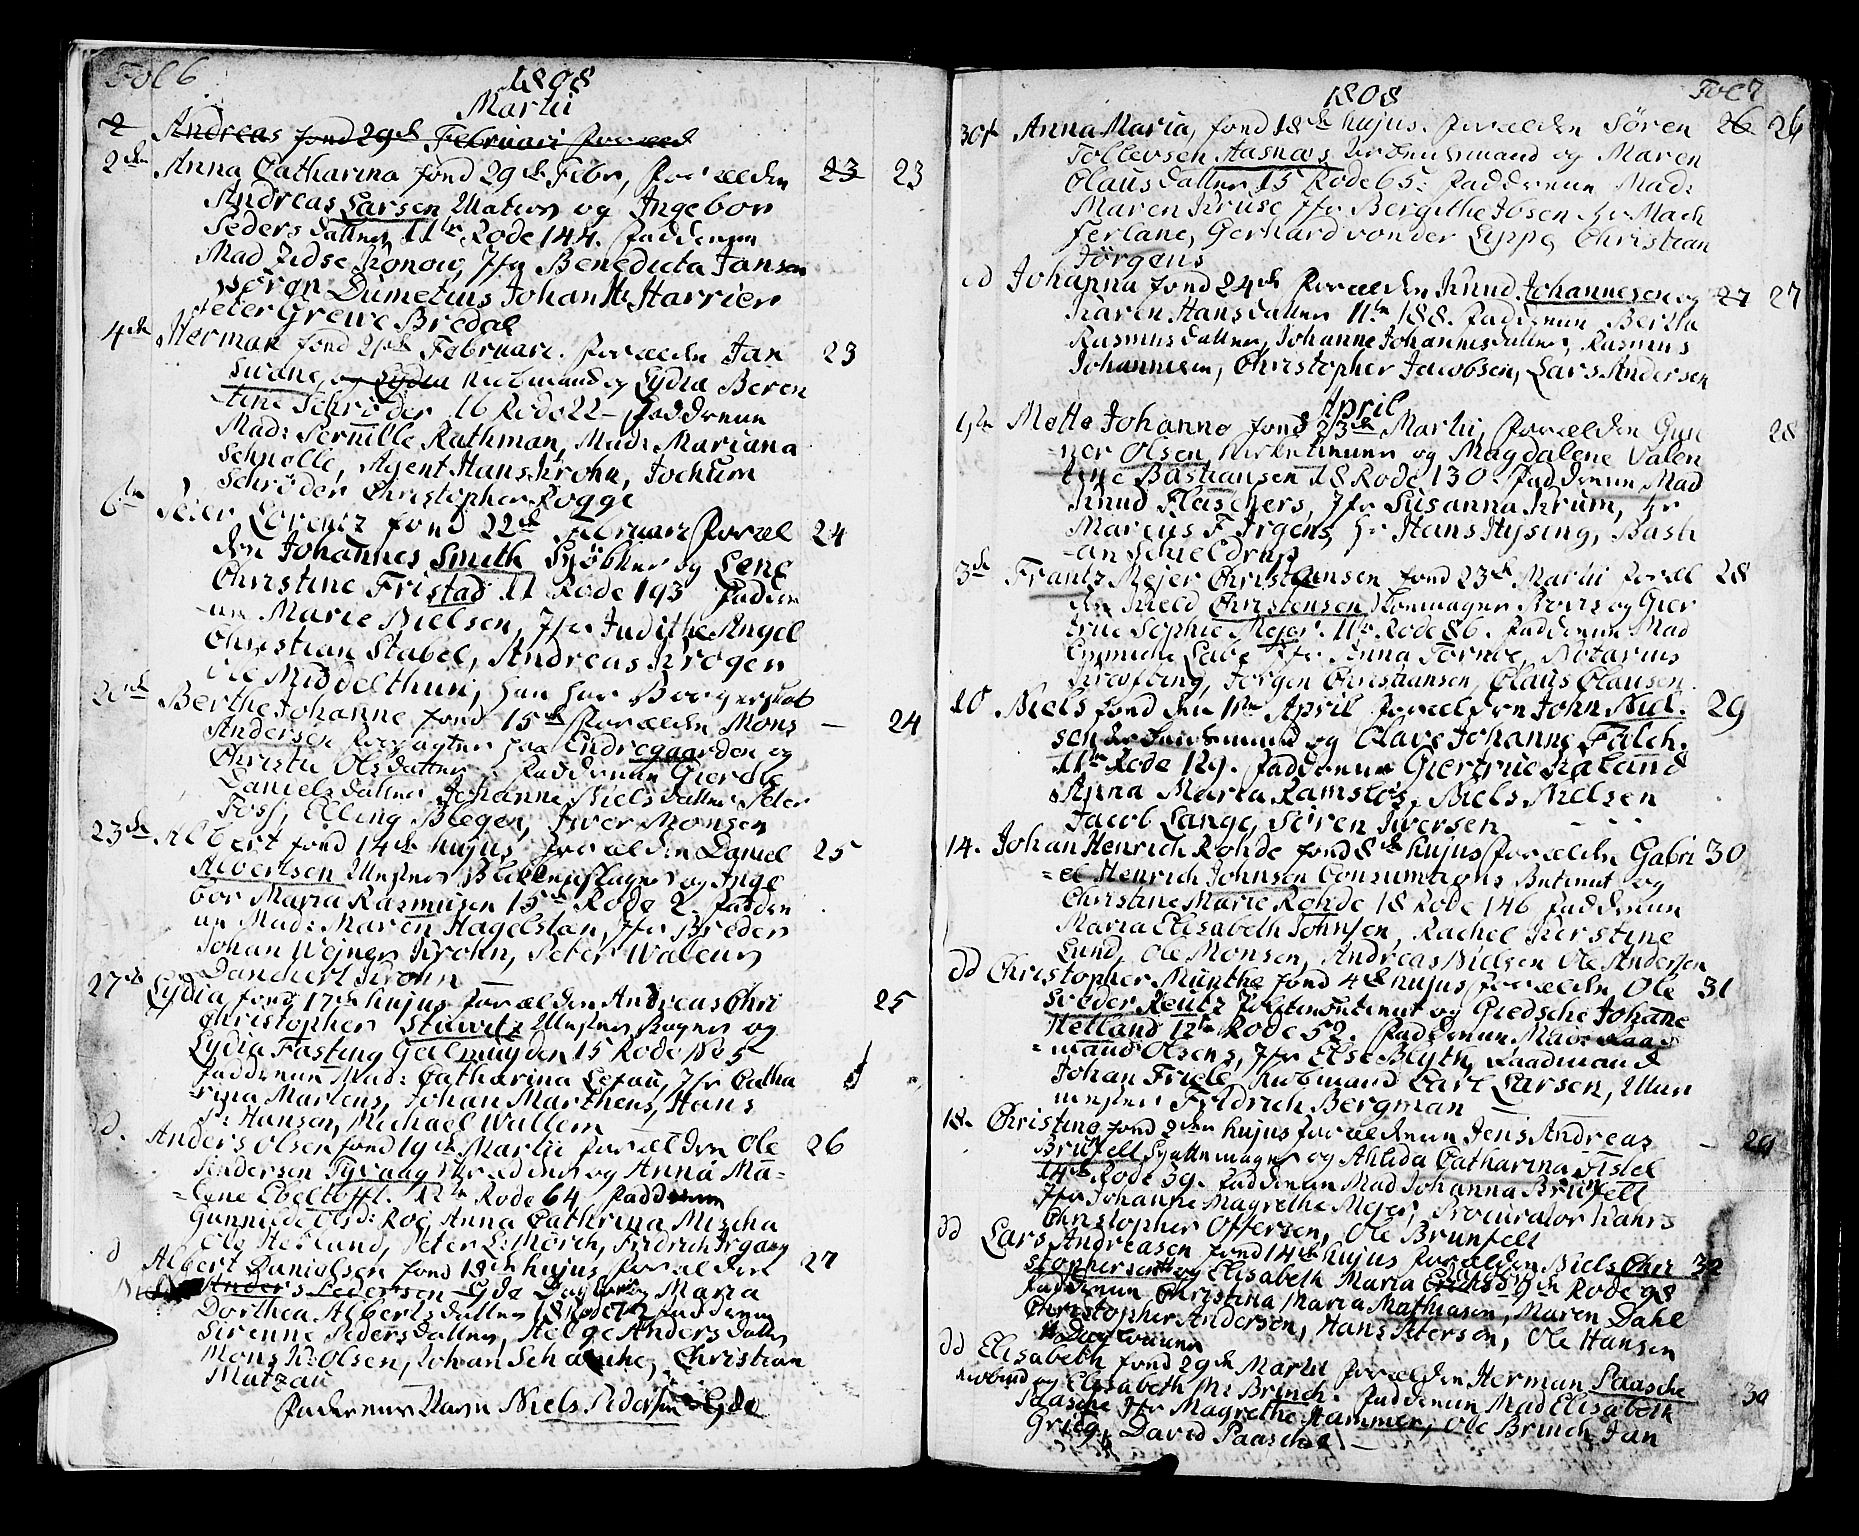 Fol 6
1808
Martii
2 Andreas fond 29de Februari foræld
2den Anna Catharina fond 29de Febr, forælden 23 23
Andreas Larsen Matros og Ingebor
Peders datter 11te Rode 144. fadderne
Mad Kronow, Jfr Benedicta Jansen
Jørgn Dumetius Johan H: Harrier
Peter Grewe Bredal
4de Herman fond 21de Februari. forælden Jan 23
Swane, og Lydia Kiøbmand og Lydia Beren
-tine Schrøder 16 Rode 22 - fadderne
Mad: Pernille Rathman, Mad: Mariana
Schnelle, Agent Hans Krohn, Jochum
Schrøder Christopher Rogge
6te Peter Lorentz fond 22de Februari foræl 24
den Johannes Smith og Lene
Christine Fristad 11 Rode 193 fadder
-ne Marie Nielsen, Jfr Judithe Angel
Christian Stabel, Andreas Krøger
Ole Middelthun, han har Borgerskab
Berthe Johanne fond 15de forælden Mons — 24
Andersen paa Endregaarden og
Christi Olsdatter. Fadderne Gierdle
Danielsdatter Johanne Nielsdatter Peter
Foss, Elling Blegen, Iwer Monsen
23de Albert fond 14de hujus, forælden Daniel 25
Albertsen Mester Blikkenslager og Inge
bor Maria Rasmusen 15de Rode 2. fadder
ne Mad: Maren Hagelstan, Jfr Breder
Johan Wejner Krohn, Peter Waleur
Danckert Krohn
27de Lydia fond 17de hujus forælden Andreas Chri 25
Christopher Stuwitz Mester Bager og
Lydia Fasting Geelmuyden 15 Rode No 5
fadderne Mad: Catharina Lexau, Jfr Catha
rina Martens, Johan Marthens, Hans
P: Hansen, Michael Wallem
dd. Anders Olsen fond 19de Martii forælden Ole 26
Andersen og Anna Ma-
-lene Ebeltofft. 12te Rode 64 fadderne
Gunnilde Olsd: Roe, Anna Cathrina Mischa
Ole Hesland, Peter L: Mørch, Fridrich Irgang
d Albert Danielsen fond 18de hujus forælden 27
Niels Anders Pedersen Eyde og Maria
Dorthea Alberts datter 18 Rode 12 fadderne
Sirenne Pedersdatter, Helge Anders datter
Mons K: Olsen, Johan Schasche, Christian
Matzau
faderens Navn Niels Pedersen Eyde
1808
Fol 7
30te Anna Maria, fond 18de hujus. forælden Søren 26 26
Tollevsen Aasnæs og Maren
Claus datter 15 Rode 65: fadderne Mad:
Maren Kruse Jfr Bergithe Ibsen hr Mach
ferlane, Gerhard von der Lippe, Christian
Jørgens
dd Johanna fond 24de forælden Knud Johannesen og 27 27
Karen Hansdatter 11te 188. fadderne Bertha
Rasmusdatter, Johanne Johannisdatter, Rasmus
Johannesen, Christopher Jacobsen, Lars Andersen
April
1te Mette Johanne fond 23de Martii, forælden Gun 28
-ner Olsen, og Magdalene Valen
tine Bastiansen 18 Rode 130. fadderne Mad
Knud Flaschers, Jfr Susanna Krum, hr
Marcus F. Irgens, hr Hans Hysing, Basti
-an Schieldrup
3de Frantz Mejer Christensen fond 23de Martii foræl 28
den Kield Christensen og Gier
true Sophie Mejer. 11te Rode 86. fadderne Mad
Lave Jfr Anna Tornøe, Notarius
Krøfting, Jørgen Christiansen, Claus Clausen
10 Niels fond den 1te April forælderne John Niel. 29
sen og Clave Johanne Falch.
11te Rode 129. fadderne Giertrue Kaland
Anna Maria Ramsløs, Niels Nielsen
Jacob Lange, Søren Iwersen
14. Johan Henrich Rohde fond 8de hujus forælden Gabri 30
-el Henrich Johnsen Consumtions Betient og
Christine Marie Rohde 18 Rode 146 fadderne
Maria Elisabeth Johnsen, Rachel Kirstine
Lund, Ole Monsen, Andreas Nielsen Ole Andersen
dd Christopher Munthe fond 4de hujus forælden Ole 31
Svøder Reutz Politiebetient og Giedsche Johane
Hetland 12te Rode 52. fadderne Mad:
mand Olsens, Jfr Else Blyth, Raadmand
Johan Friele, Kiøbmand Carl Larsen, Muur
mester Fridrich Bergman
18. Christine fond 2den hujus forælderne Jens Andreas — 29
Brunfelt og Ahlida Catharina Fislel
14de Rode 39. fadderne Mad Johanna Brunfelt
Jfr Johanne Magrethe Mejer, Procurator Kahrs
Christopher Offersen, Ole Brunfelt
dd Lars Andreasen fond 14de hujus forælden Niels Chri 32
stophersen og Elisabeth Maria 9de Rode 98
fadderne Christina Maria Mathiasen, Maren Dahl
Christopher Andersen, Hans Petersen, Ole Hansen
dd Elisabeth fond 29de Martii forælden Herman Paasche
Kiøbmd og Elisabeth M: Brinch. fadderne Mad Elisabeth 30
Paasche Jfr Magrethe Hammer, Ole Brinch Jan
Grieg, David Paasche